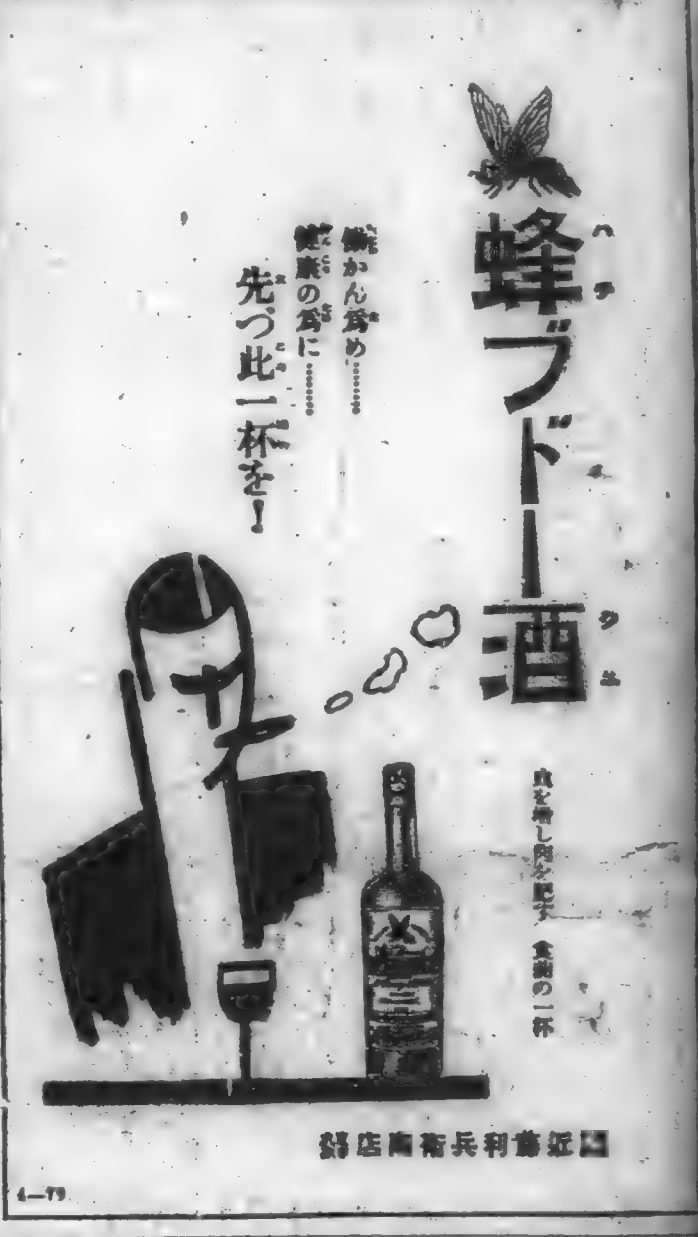 蜂ブドー酒
働かん為め………
健康の為に………
先づ此一杯を！
血を増し肉を肥す 食前の一杯
近藤利兵衛商店